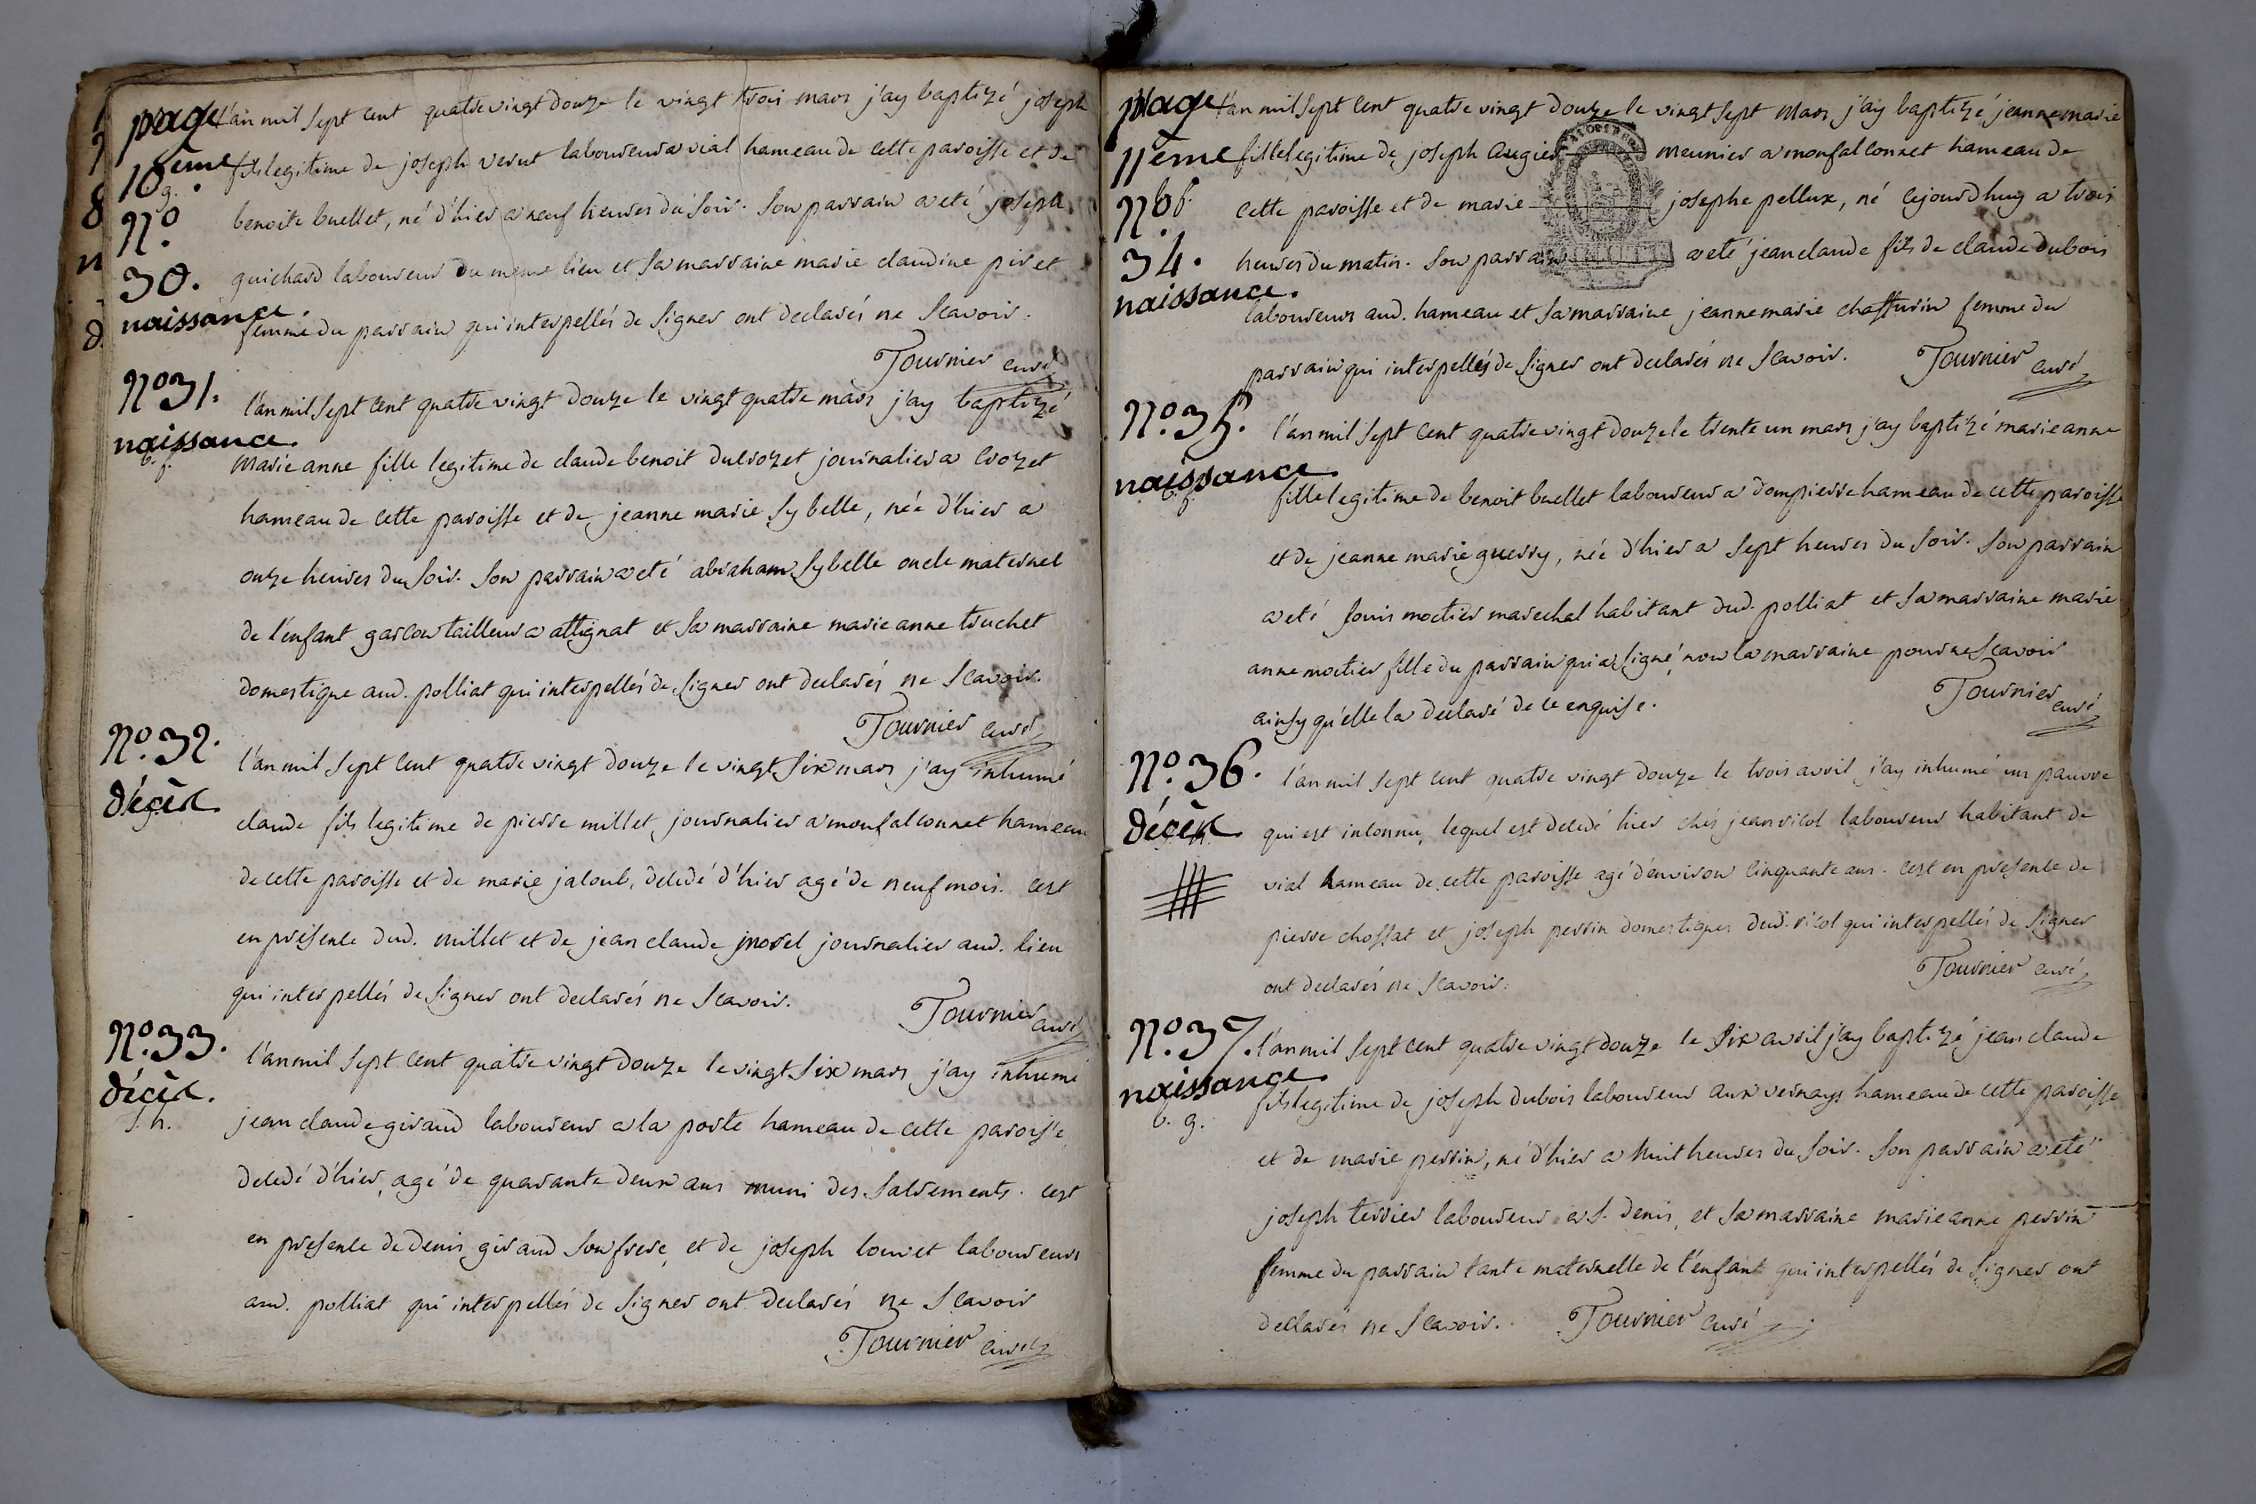 page
10eme
g.
n.o
30.
naissance.
l'an mil sept cent quatre vingt douze le vingt trois mars j'ay baptizé joseph
fils legitime de joseph verut laboureur a vial hameau de cette paroisse et de
benoite buellet, né d'hier a neuf heures du soir. son parrain a eté joseph
guichard laboureur du meme lieu et sa marraine marie claudine piret
femme du parrain qui interpellés de signer ont declarés ne scavoir.
Tournier curé
n.o 31.
naissance.
b. f.
l'an mil sept cent quatre vingt douze le vingt quatre mars j'ay baptizé
marie anne fille legitime de claude benoit ducrozet journalier a crozet
hameau de cette paroisse et de jeanne marie sybelle, née d'hier a
onze heures du soir. son parrain a eté abraham sybelle oncle maternel
de l'enfant garcon tailleur a attignat et sa marraine marie anne truchet
domestique aud. polliat qui interpellés de signer ont declarés ne scavoir.
Tournier curé
n.o 32.
décès
l'an mil sept cent quatre vingt douze le vingt six mars j'ay inhumé
claude fils legitime de pierre millet journalier a monfalconnet hameau
de cette paroisse et de marie jaloub, decedé d'hier agé de neuf mois. cest
en présence dud. millet et de jean claude morel journalier aud. lieu
qui interpellés de signer ont declarés ne scavoir.
Tournier curé
n.o 33.
décès.
s. h.
l'an mil sept cent quatre vingt douze le vingt six mars j'ay inhumé
jean claude giraud laboureur a la poste hameau de cette paroisse
decedé d'hier, agé de quarante deux ans muni des sacrements. cest
en presence de denis giraud son frere, et de joseph louvet laboureurs
aud. polliat qui interpellés de signer ont declarés ne scavoir
Tournier curé
page
11eme
n.o b f.
34.
naissance.
l'an mil sept cent quatre vingt douze le vingt sept mars j'ay baptizé jeanne marie
fille legitime de joseph augier meunier a monfalconnet hameau de
cette paroisse et de marie josephe pellux, né cejourdhuy a trois
heures du matin. son parrain a eté jean claude fils de claude dubois
laboureurs aud. hameau et sa marraine jeanne marie chaffurin femme du
parrain qui interpellés de signer ont declarés ne scavoir.
Tournier curé
n.o 35.
naissance.
b. f.
l'an mil sept cent quatre vingt douze le trente un mars j'ay baptizé marie anne
fille legitime de benoit buellet laboureur a dompierre hameau de cette paroisse
et de jeanne marie guerry, née d'hier a sept heures du soir. son parrain
a eté louis moctier marechal habitant dud. polliat et sa marraine marie
anne moctier fille du parrain qui a signé, non la marraine pour ne scavoir
ainsy qu'elle la declaré de ce enquise.
Tournier curé
n.o 36.
décès
l'an mil sept cent quatre vingt douze le trois avril j'ay inhumé un pauvre
qui est inconnu, lequel est decedé hier chés jean vicol laboureur habitant de
vial hameau de cette paroisse agé d'environ cinquante ans. cest en presence de
pierre chossat et joseph perrin domestiques dud. ricol qui interpellés de signer
ont declarés ne scavoir.
Tournier curé
n.o 37.
naissance.
b. g.
l'an mil sept cent quatre vingt douze le six avril j'ay baptizé jean claude
fils legitime de joseph dubois laboureur aux vernays hameau de cette paroisse
et de marie perrin, né d'hier a huit heures du soir. son parrain a eté
joseph terrier laboureur a s. denis, et sa marraine marie anne perrin
femme du parrain tante maternelle de l'enfant qui interpellés de signer ont
declarés ne scavoir. Tournier curé